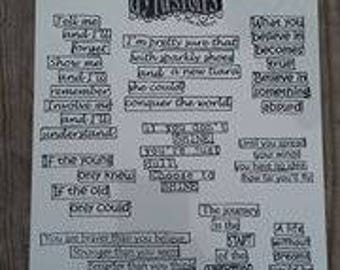 Tell me
and I'll
forget
Show me
and I'll
remember
Involve me
and I'll
understand.
I'm pretty sure that
with sparkly shoes
and a new tiara
she could
conquer the world
What you
believe in
becomes
true!
Believe in
something
absurd
if you don't
SHINE
you're just
dull.
choose to
SHINE
If the young
only knew
If the old
only could
Until you spread
your wings
you have no idea
how far you'll fly
You are braver than you believe,
Stronger than you seem
Smarter than you think
The journey
is the
START
A life
without
dreams